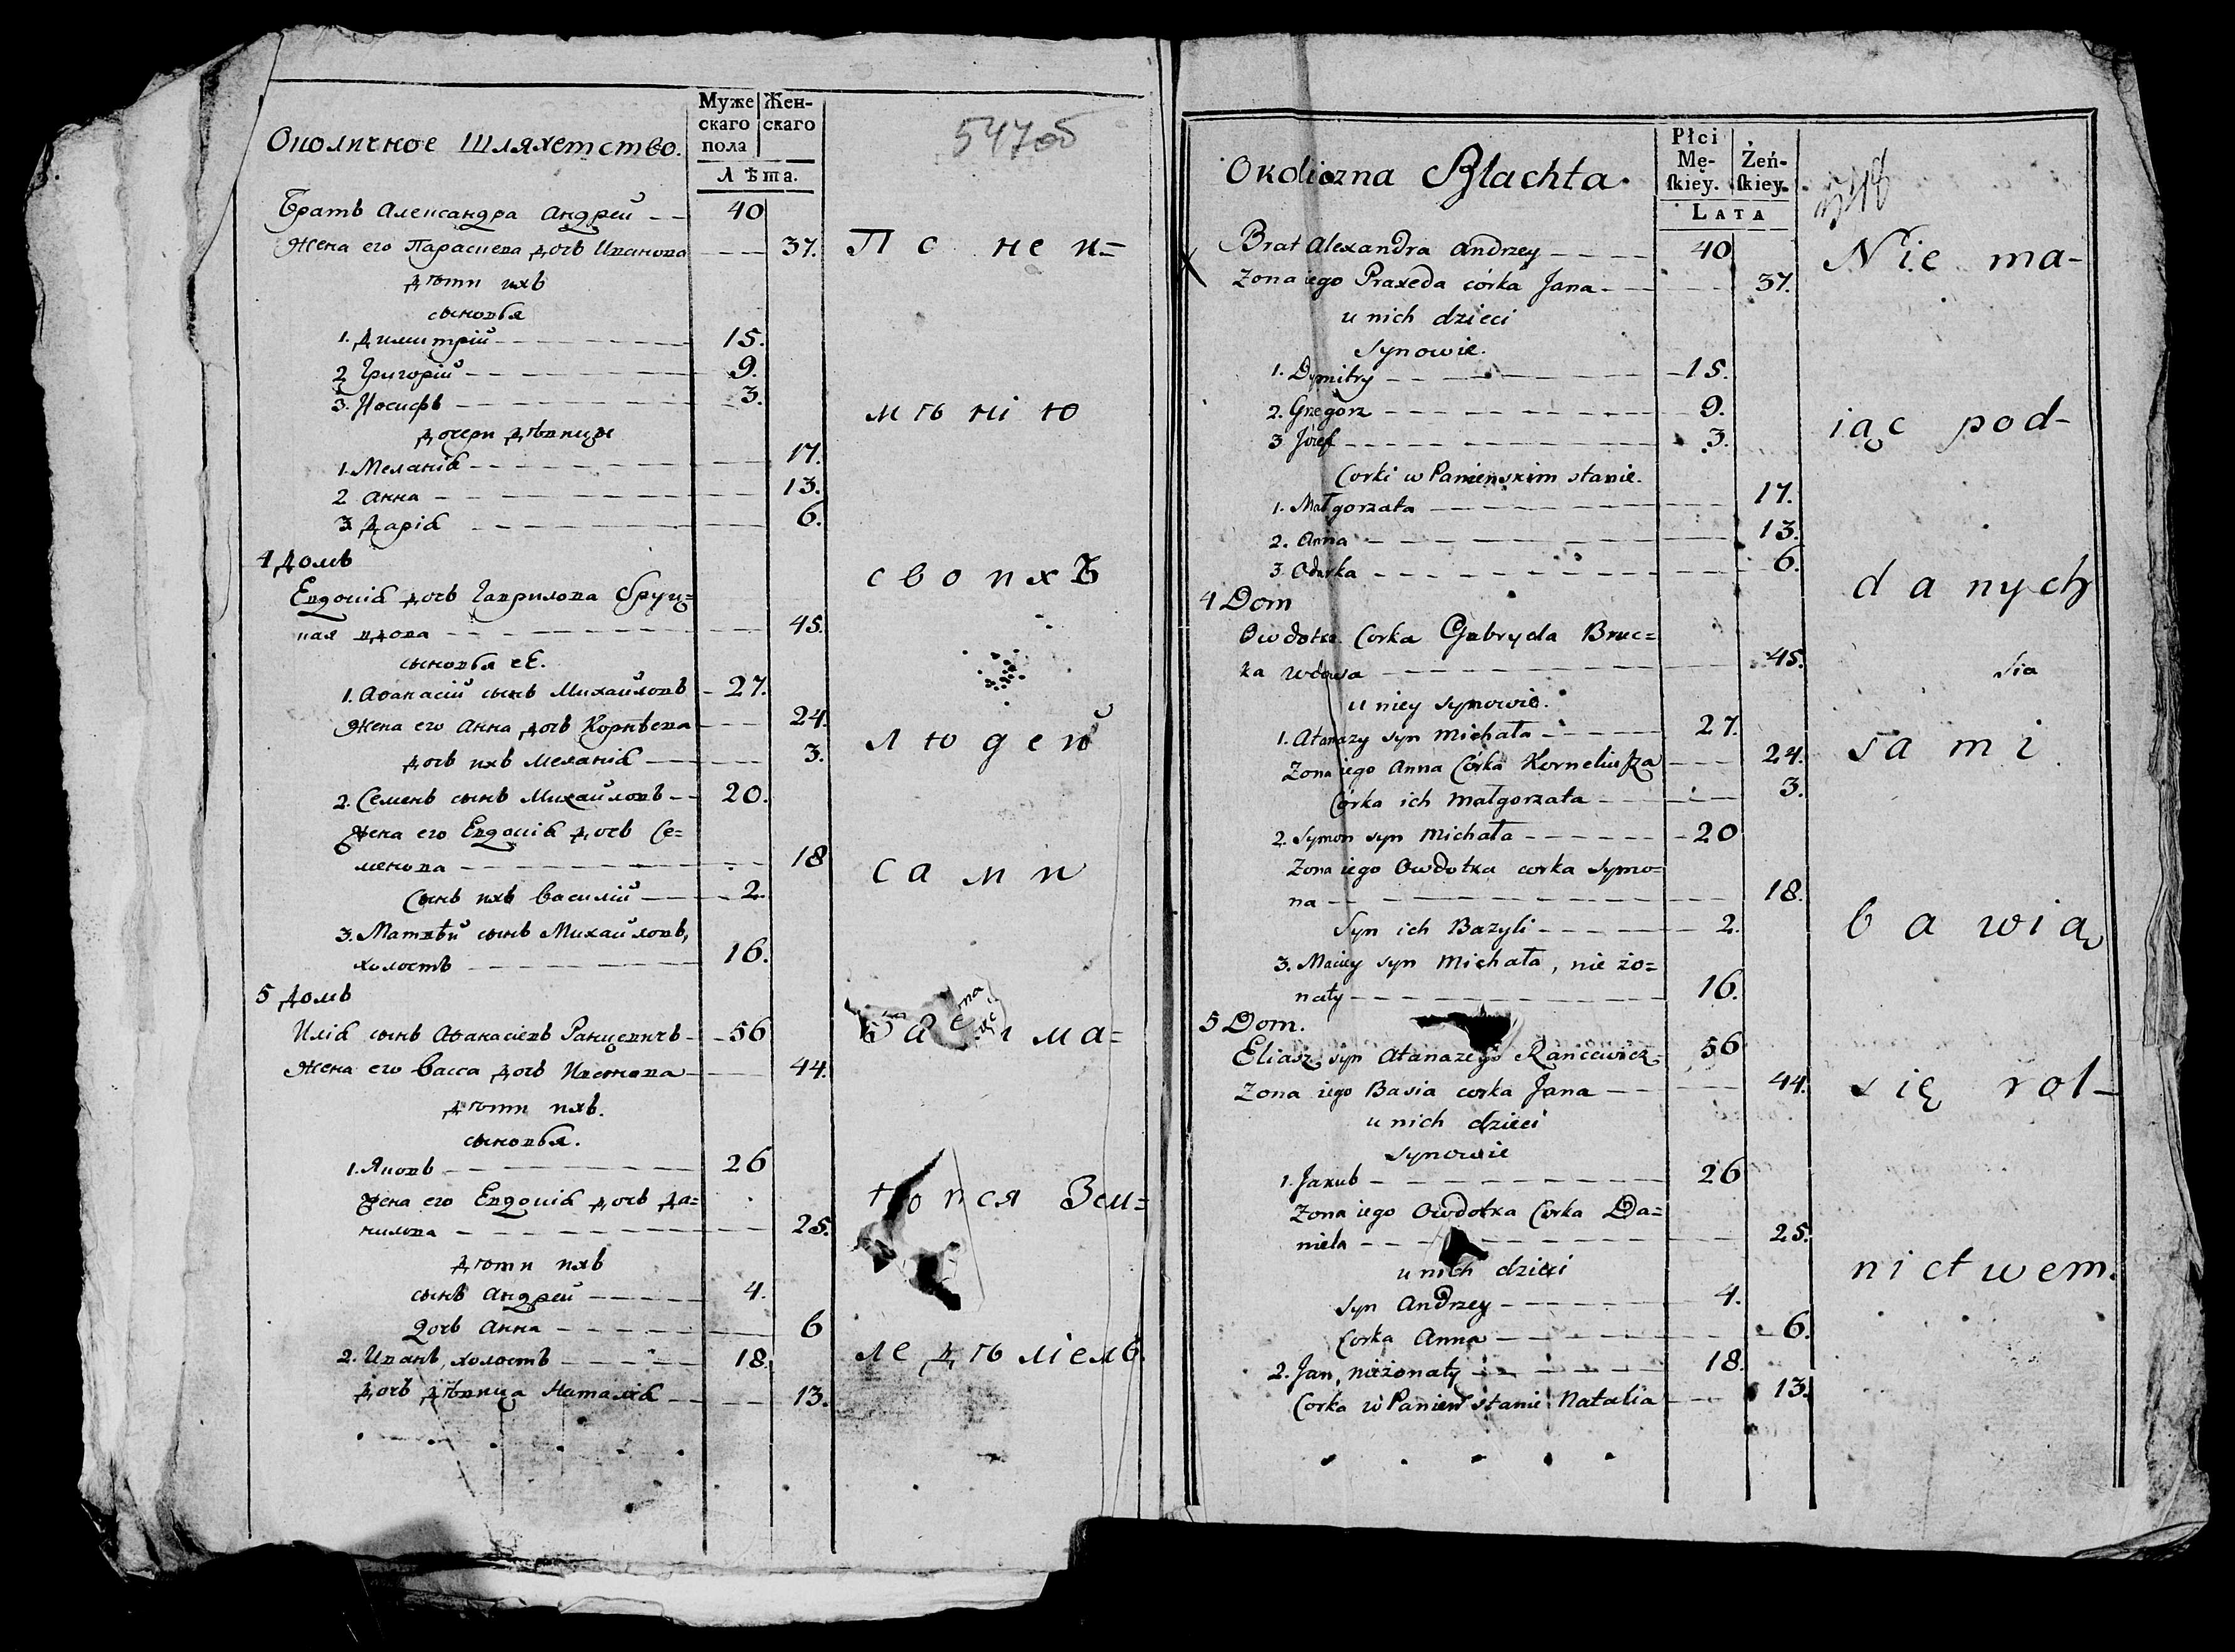 Околичное Шляхетство.
Муже
скаго
пола
Жен-
скаго
Лѣта.
547об
Братъ Александра Андрей 40
Жена его Параскева дочь Иванова 37.
дѣти ихъ
сыновья
1. Димитрій 15.
2 Григорій 9.
3. Іосифъ 3.
дочери дѣвицы
1. Меланія 17.
2 Анна 13.
3 Дарія 6.
4 Домъ
Евдокія дочь Гаврилова Бруц=
кая вдова 45.
сыновья её.
1. Аѳанасій сынъ Михайловъ 27.
Жена его Анна дочь Корнѣева 24.
дочь ихъ Меланія 3.
2. Семенъ сынъ Михайловъ 20.
Жена его Евдокія дочь Се=
менова 18
Сынъ ихъ Василій 2.
3. Матвѣй сынъ Михайловъ,
холостъ 16.
5 Домъ
Илія сынъ Аѳанасіевъ Ранцевичъ 56
Жена его Васса дочь Иванова 44.
дѣти ихъ.
сыновья.
1. Яковъ 26
Жена его Евдокія дочь Да=
нилова 25.
дѣти ихъ
сынъ Андрей 4.
дочь Анна 6
2. Иванъ, холостъ 18.
дочь дѣвица Наталія 13.
По неи=
мѣнію
своихъ
людей
сами
ма=
ются Зем=
ледѣліемъ.
Okoliczna Szlachta.
Płci
Mę-
skiey.
Żeń-
skiey.
LATA
Brat Alexandra Andrzey 40
Zona iego Praxeda córka Jana 37.
u nich dzieci
Synowie.
1. Dymitry 15.
2. Grzegorz 9.
3 Józef 3.
Corki w Panienskim stanie.
1. Małgorzata 17.
2. Anna 13.
3 Odarka 6.
4 Dom
Owdotka Corka Gabryela Bruc=
ka wdowa 45.
u niey synowie.
1. Atanazy syn Michała 27.
Zona iego Anna Córka Korneliusza 24.
Córka ich Małgorzata 3.
2. Symon syn Michała 20
Zona iego Owdotka corka Symo=
na 18.
Syn ich Bazyli 2.
3. Maciey syn Michała, nie żo=
naty 16.
5 Dom.
Eliasz syn Atanazego Rancewicz 56
Zona iego Basia corka Jana 44.
u nich dzieci
synowie
1. Jakub 26
Zona iego Owdotka Corka Da=
niela 25.
u nich dzieci
syn Andrzey 4.
Corka Anna 6.
2. Jan, nieżonaty 18.
Corka w Panień stanie Natalia 13.
Nie ma-
iąc pod-
danych
sami
bawią
się rol-
nictwem.